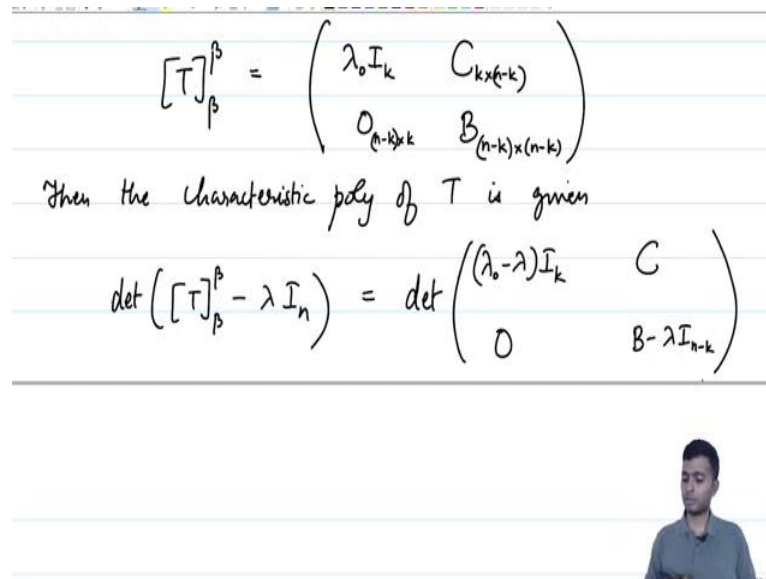 [T]_β^β = ( λ₀I_k C_{k×(n-k)}
O_{(n-k)×k} B_{(n-k)×(n-k)} )
Then the characteristic poly of T is given
det([T]_β^β - λI_n) = det( (λ₀-λ)I_k C
O B-λI_{n-k} )